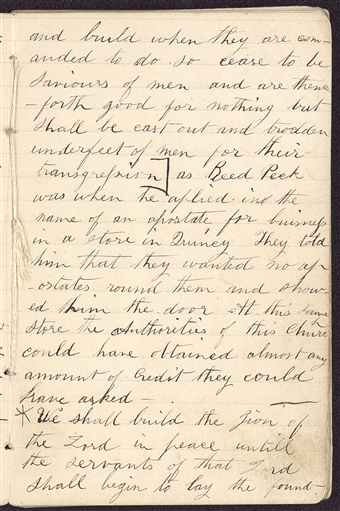 and build when they are com-
anded to do. so cease to be
saviours of men and are thence
-forth good for nothing but
shall be cast out and trodden
underfeet of men for their
transgression] as Reed Peck
was when he aplied in the
name of an apostate for buisness
in a store in Quincy They told
him that they wanted no ap-
-ostates round them and show-
ed him the door At this same
store the Authorities of this Church
could have obtained almost any
amount of Credit they could
have asked —
X We shall build the Zion of
the Lord in peace untill
the servants of that Lord
shall begin to lay the found-